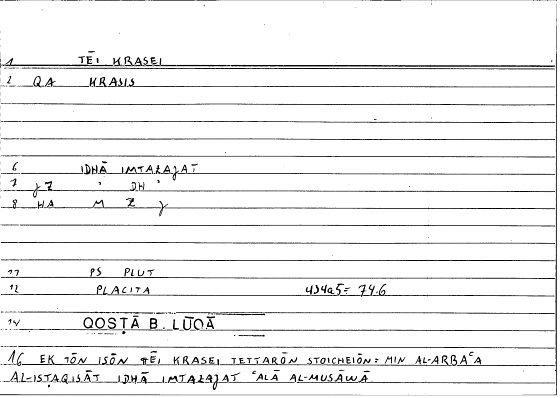 1 TĒI KRASEI
2 QA KRASIS
6 IDHĀ IMTAZAJAT
7 J Z ' DH '
8 HA M Z J
11 PS PLUT
12 PLACITA 434a5 = 74.6
14 QOSṬĀ B. LŪQĀ
16 EK TŌN ISŌN TĒI KRASEI TETTARŌN STOICHEIŌN = MIN AL-ARBAᶜA
AL-ISTAQISĀT IDHĀ IMTAZAJAT ᶜALĀ AL-MUSĀWĀ